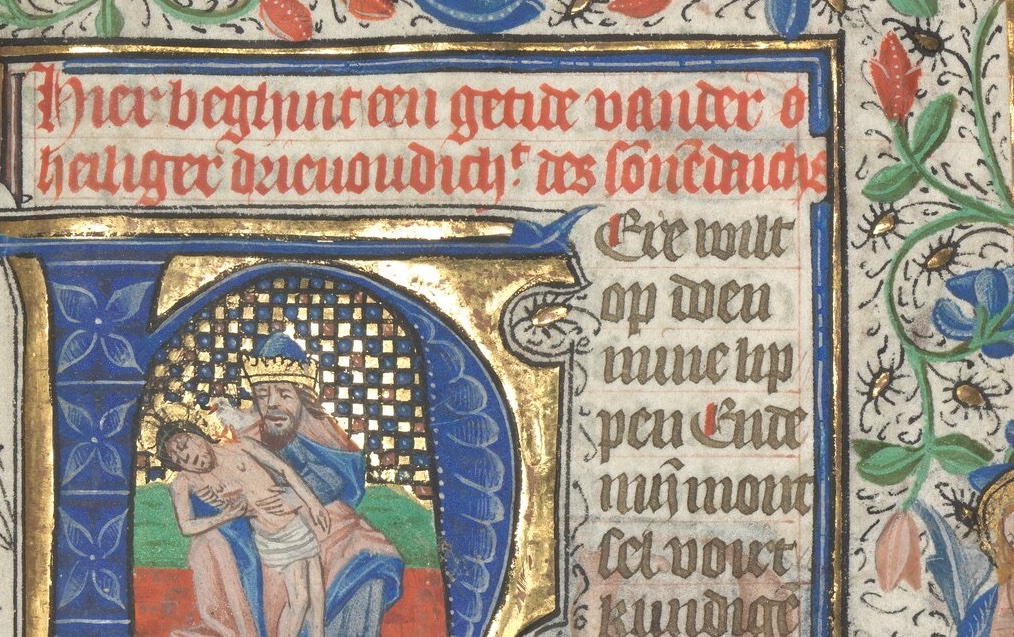 Hier beghint een getide vander o
heiliger drieuoudicht des sōnēdaichs
Here wilt
op doen
mine lip
pen Ende
mijn mont
sel vort
kundigē